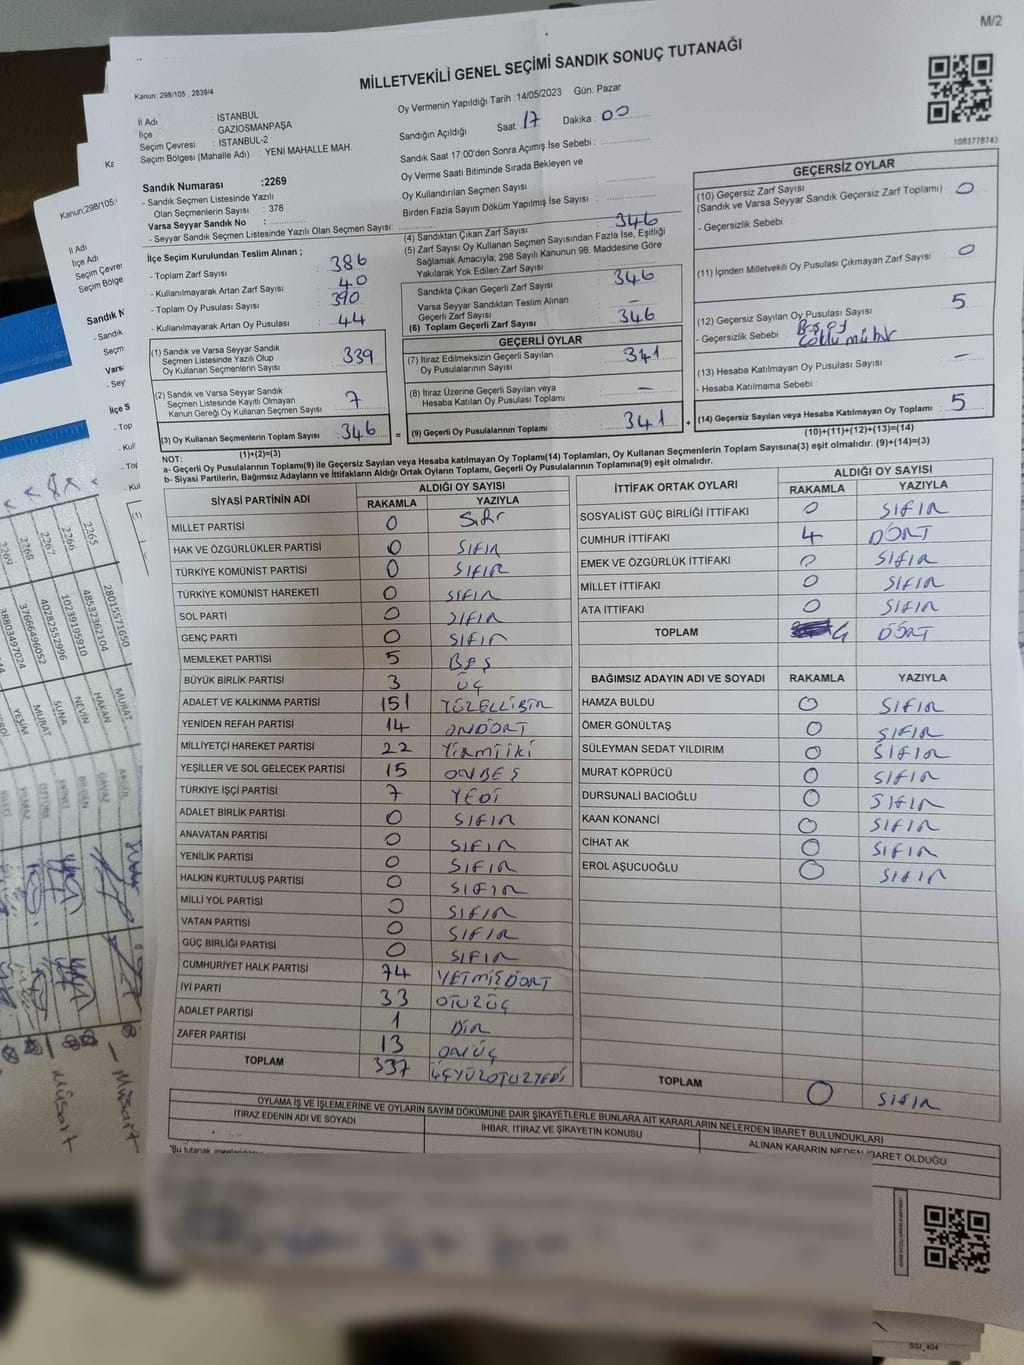 M/2
Kanun: 298/105 , 2839/4
MİLLETVEKİLİ GENEL SEÇİMİ SANDIK SONUÇ TUTANAĞI
İl Adı : İSTANBUL
İlçe : GAZİOSMANPAŞA
Seçim Çevresi : İSTANBUL-2
Seçim Bölgesi (Mahalle Adı) : YENİ MAHALLE MAH.
Sandık Numarası :2269
- Sandık Seçmen Listesinde Yazılı
Olan Seçmenlerin Sayısı : 378
Varsa Seyyar Sandık No :
- Seyyar Sandık Seçmen Listesinde Yazılı Olan Seçmen Sayısı:
Oy Vermenin Yapıldığı Tarih :14/05/2023 Gün: Pazar
Sandığın Açıldığı Saat: 17 Dakika : 00
Sandık Saat 17:00'den Sonra Açımış İse Sebebi :
Oy Verme Saati Bitiminde Sırada Bekleyen ve
Oy Kullandırılan Seçmen Sayısı :
Birden Fazla Sayım Döküm Yapılmış İse Sayısı :
1083778743
İlçe Seçim Kurulundan Teslim Alınan ;
- Toplam Zarf Sayısı : 386
- Kullanılmayarak Artan Zarf Sayısı : 40
- Toplam Oy Pusulası Sayısı : 390
- Kullanılmayarak Artan Oy Pusulası : 44
(1) Sandık ve Varsa Seyyar Sandık
Seçmen Listesinde Yazılı Olup
Oy Kullanan Seçmenlerin Sayısı : 339
(2) Sandık ve Varsa Seyyar Sandık
Seçmen Listesinde Kayıtlı Olmayan
Kanun Gereği Oy Kullanan Seçmen Sayısı : 7
(3) Oy Kullanan Seçmenlerin Toplam Sayısı : 346
(1)+(2)=(3)
(4) Sandıktan Çıkan Zarf Sayısı : 346
(5) Zarf Sayısı Oy Kullanan Seçmen Sayısından Fazla İse, Eşitliği
Sağlamak Amacıyla, 298 Sayılı Kanunun 98. Maddesine Göre
Yakılarak Yok Edilen Zarf Sayısı :
Sandıkta Çıkan Geçerli Zarf Sayısı : 346
Varsa Seyyar Sandıktan Teslim Alınan
Geçerli Zarf Sayısı : -
(6) Toplam Geçerli Zarf Sayısı : 346
GEÇERLİ OYLAR
(7) İtiraz Edilmeksizin Geçerli Sayılan
Oy Pusulasının Sayısı : 341
(8) İtiraz Üzerine Geçerli Sayılan veya
Hesaba Katılan Oy Pusulası Toplamı : -
= (9) Geçerli Oy Pusulalarının Toplamı : 341 +
GEÇERSİZ OYLAR
(10) Geçersiz Zarf Sayısı
(Sandık ve Varsa Seyyar Sandık Geçersiz Zarf Toplamı) : 0
- Geçersizlik Sebebi :
(11) İçinden Milletvekili Oy Pusulası Çıkmayan Zarf Sayısı : 0
(12) Geçersiz Sayılan Oy Pusulası Sayısı : 5
- Geçersizlik Sebebi : mühür
(13) Hesaba Katılmayan Oy Pusulası Sayısı : -
- Hesaba Katılmama Sebebi :
(14) Geçersiz Sayılan veya Hesaba Katılmayan Oy Toplamı : 5
(10)+(11)+(12)+(13)=(14)
NOT:
a- Geçerli Oy Pusulalarının Toplamı(9) ile Geçersiz Sayılan veya Hesaba katılmayan Oy Toplamı(14) Toplamları, Oy Kullanan Seçmenlerin Toplam Sayısına(3) eşit olmalıdır. (9)+(14)=(3)
b- Siyasi Partilerin, Bağımsız Adayların ve İttifakların Aldığı Ortak Oyların Toplamı, Geçerli Oy Pusulalarının Toplamına(9) eşit olmalıdır.
SİYASİ PARTİNİN ADI ALDIĞI OY SAYISI
RAKAMLA YAZIYLA
MİLLET PARTİSİ 0 Sıfır
HAK VE ÖZGÜRLÜKLER PARTİSİ 0 SIFIR
TÜRKİYE KOMÜNİST PARTİSİ 0 SIFIR
TÜRKİYE KOMÜNİST HAREKETİ 0 SIFIR
SOL PARTİ 0 SIFIR
GENÇ PARTİ 0 SIFIR
MEMLEKET PARTİSİ 5 BEŞ
BÜYÜK BİRLİK PARTİSİ 3 ÜÇ
ADALET VE KALKINMA PARTİSİ 151 YÜZELLİBİR
YENİDEN REFAH PARTİSİ 14 ONDÖRT
MİLLİYETÇİ HAREKET PARTİSİ 22 Yirmiiki
YEŞİLLER VE SOL GELECEK PARTİSİ 15 ONBEŞ
TÜRKİYE İŞÇİ PARTİSİ 7 YEDİ
ADALET BİRLİK PARTİSİ 0 SIFIR
ANAVATAN PARTİSİ 0 SIFIR
YENİLİK PARTİSİ 0 SIFIR
HALKIN KURTULUŞ PARTİSİ 0 SIFIR
MİLLİ YOL PARTİSİ 0 SIFIR
VATAN PARTİSİ 0 SIFIR
GÜÇ BİRLİĞİ PARTİSİ 0 SIFIR
CUMHURİYET HALK PARTİSİ 74 YETMİŞDÖRT
İYİ PARTİ 33 OTUZÜÇ
ADALET PARTİSİ 1 BİR
ZAFER PARTİSİ 13 ONÜÇ
TOPLAM 337 ÜÇYÜZOTUZYEDİ
İTTİFAK ORTAK OYLARI ALDIĞI OY SAYISI
RAKAMLA YAZIYLA
SOSYALİST GÜÇ BİRLİĞİ İTTİFAKI 0 SIFIR
CUMHUR İTTİFAKI 4 DÖRT
EMEK VE ÖZGÜRLÜK İTTİFAKI 0 SIFIR
MİLLET İTTİFAKI 0 SIFIR
ATA İTTİFAKI 0 SIFIR
TOPLAM 4 DÖRT
BAĞIMSIZ ADAYIN ADI VE SOYADI RAKAMLA YAZIYLA
HAMZA BULDU 0 SIFIR
ÖMER GÖNÜLTAŞ 0 SIFIR
SÜLEYMAN SEDAT YILDIRIM 0 SIFIR
MURAT KÖPRÜCÜ 0 SIFIR
DURSUNALİ BACIOĞLU 0 SIFIR
KAAN KONANCİ 0 SIFIR
CİHAT AK 0 SIFIR
EROL AŞUCUOĞLU 0 SIFIR
TOPLAM 0 SIFIR
OYLAMA İŞ VE İŞLEMLERİNE VE OYLARIN SAYIM DÖKÜMÜNE DAİR ŞİKAYETLERLE BUNLARA AİT KARARLARIN NELERDEN İBARET BULUNDUKLARI
İTİRAZ EDENİN ADI VE SOYADI
İHBAR, İTİRAZ VE ŞİKAYETİN KONUSU
ALINAN KARARIN NEDEN İBARET OLDUĞU
Kanun:298/105
İl Adı
İlçe Adı
Seçim Çevre
Seçim Bölge
Sandık N
- Sandık
Seçm
Varsa
- Sey
İlçe S
- Top
- Kul
2265
2266
2267
2268
2269
28015571650
48532362104
10239195910
40282552996
37666496052
38803497024
MURAT
HAKAN
NEVİN
SUNA
MURAT
YEŞİM
Müsait
Müsait
SSİ_404